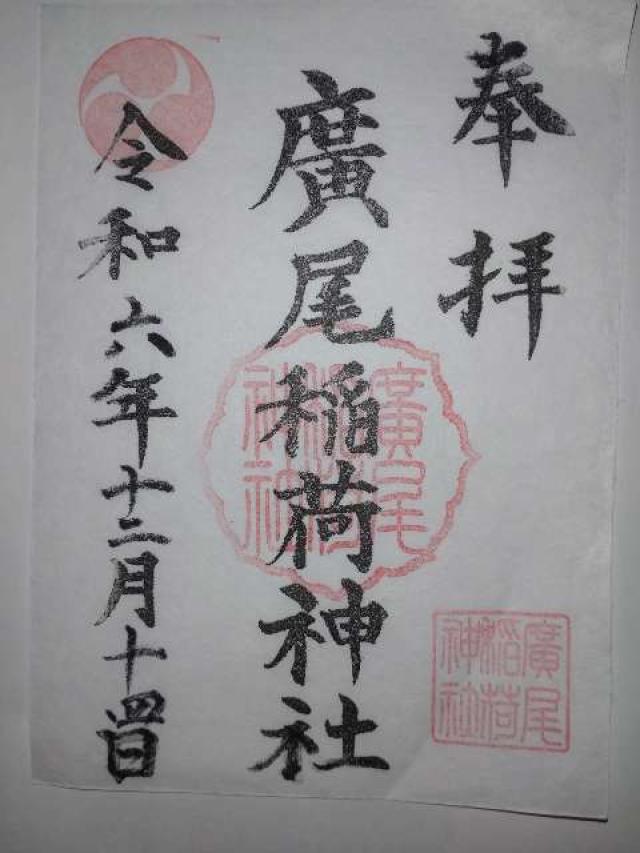 奉拝
廣尾稲荷神社
令和六年十二月十四日
廣尾
稲荷
神社
廣尾
稲荷
神社